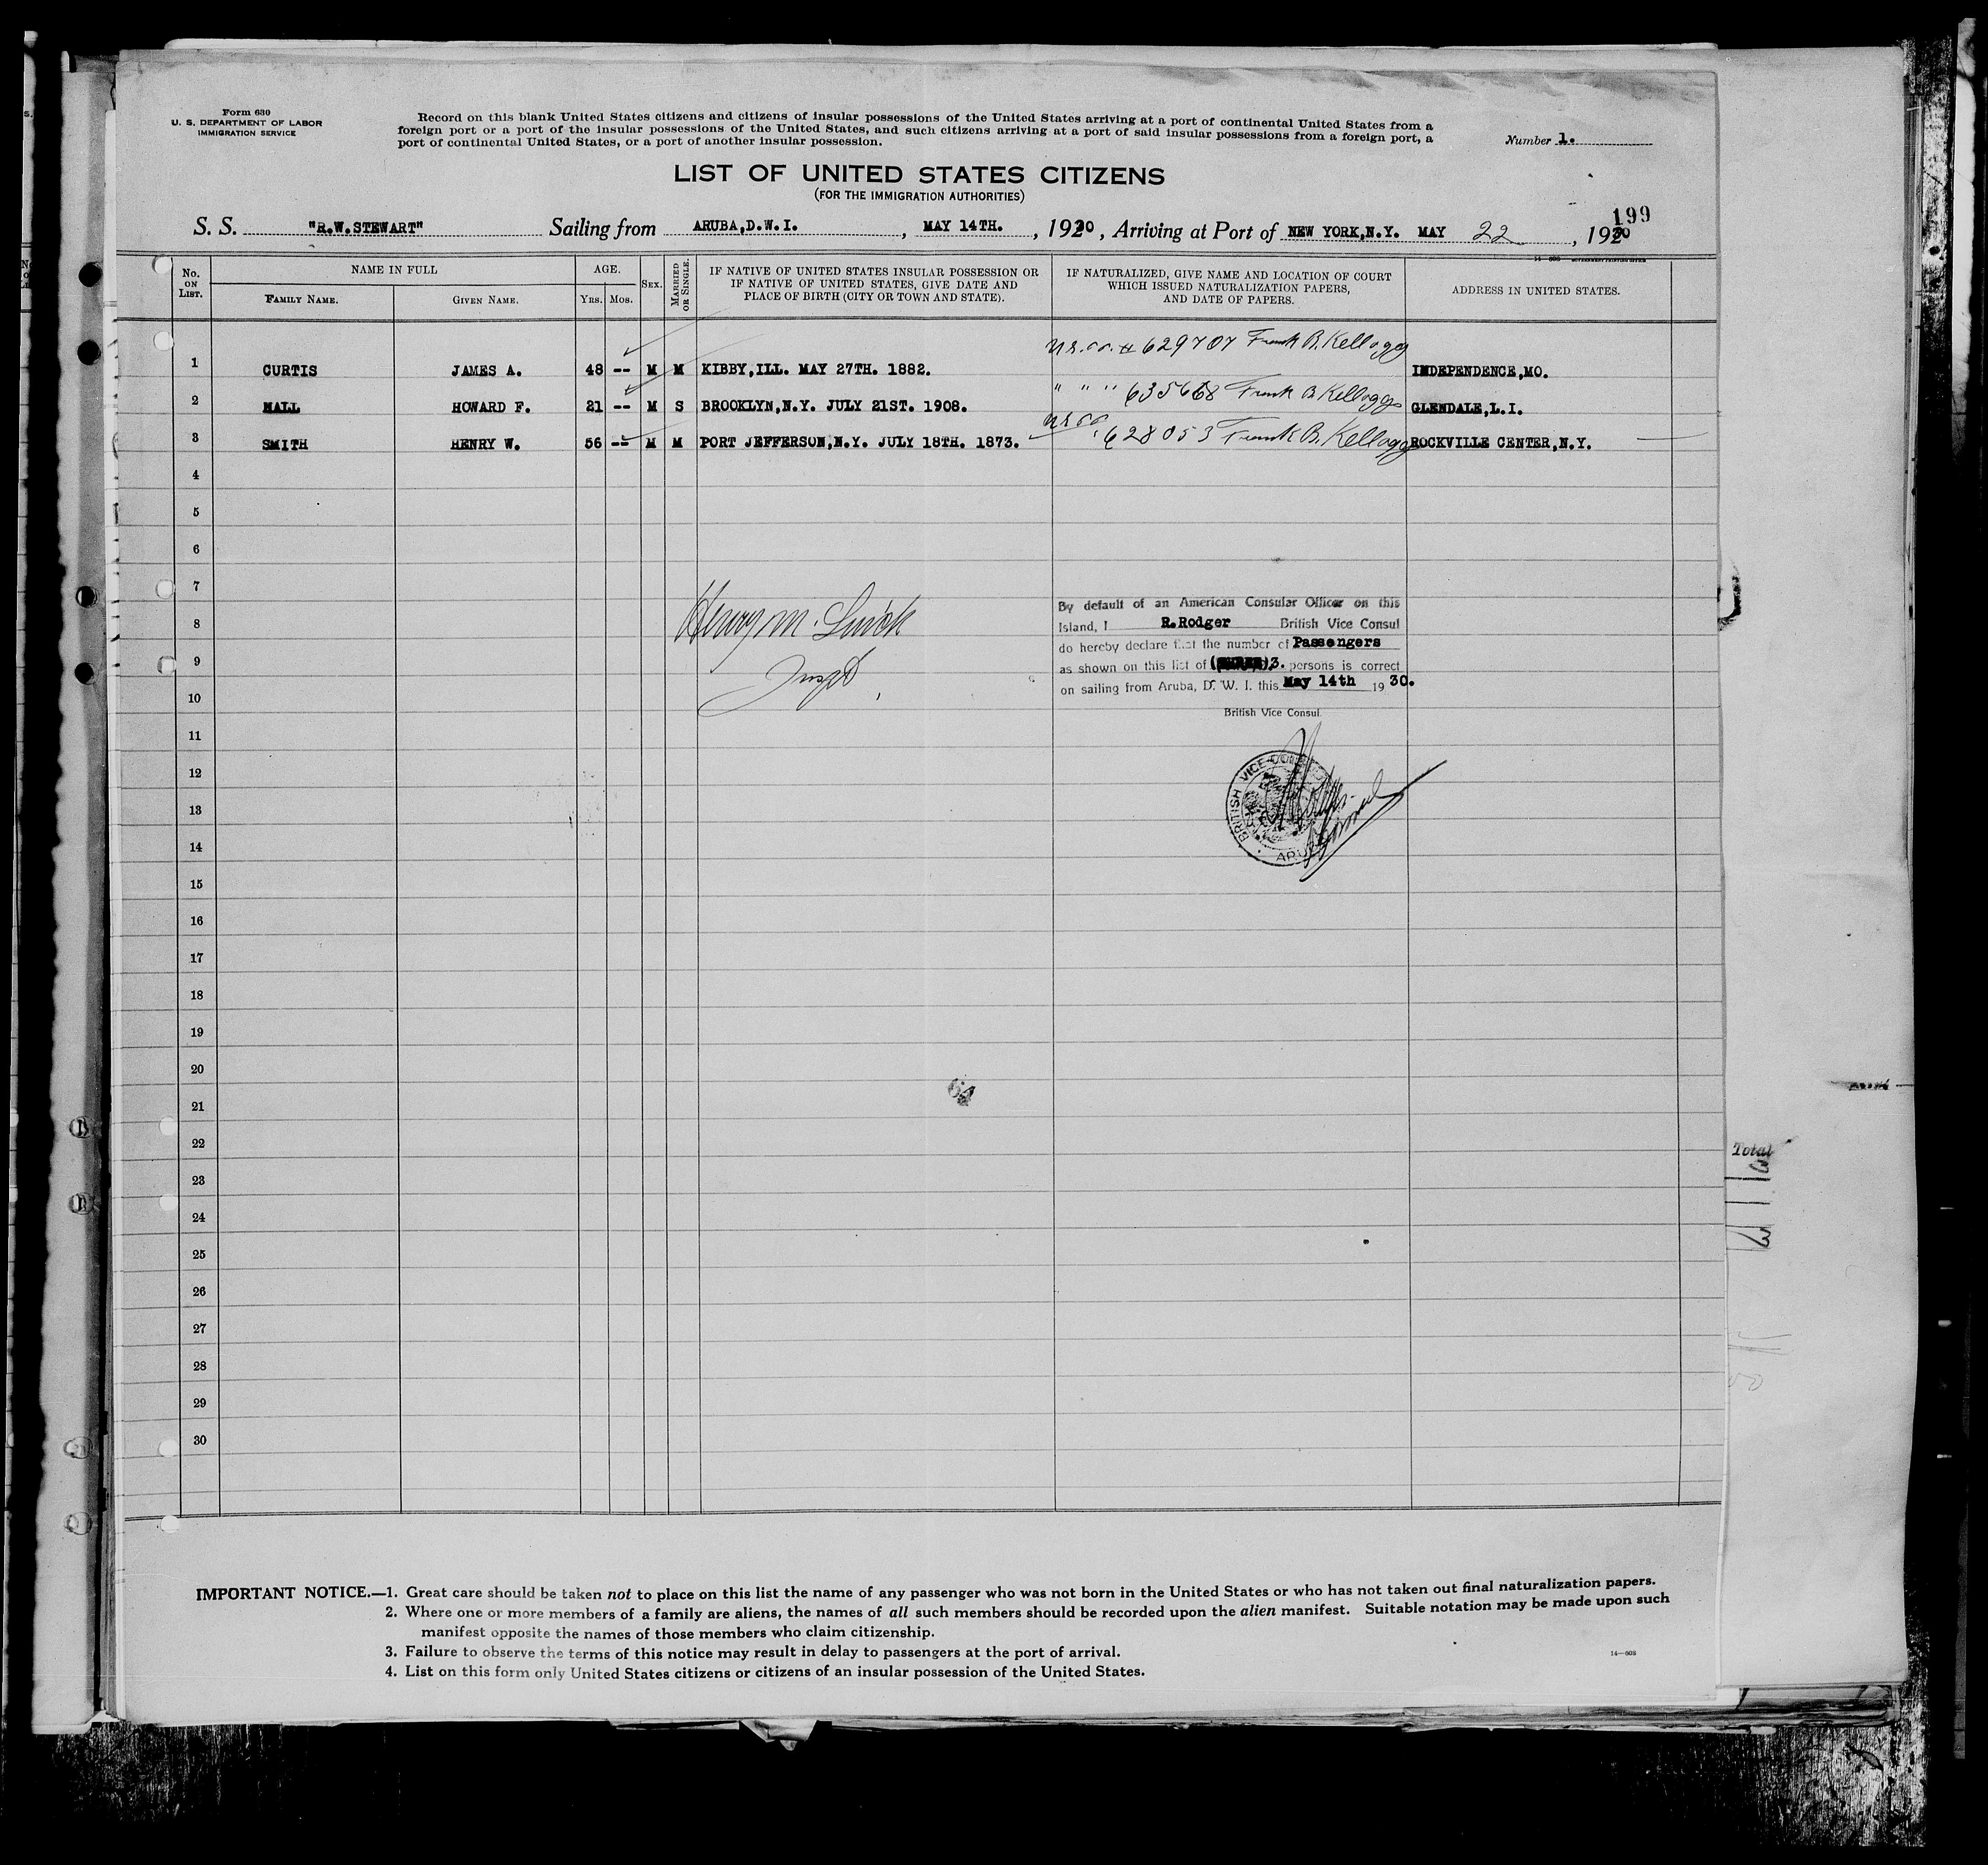 Form 630
U. S. DEPARTMENT OF LABOR
IMMIGRATION SERVICE
Record on this blank United States citizens and citizens of insular possessions of the United States arriving at a port of continental United States from a
foreign port or a port of the insular possessions of the United States, and such citizens arriving at a port of said insular possessions from a foreign port, a
port of continental United States, or a port of another insular possession.
Number 1.
LIST OF UNITED STATES CITIZENS
(FOR THE IMMIGRATION AUTHORITIES)
199
S. S. "R.W.STEWART" Sailing from ARUBA,D.W.I. , MAY 14TH. , 1930 , Arriving at Port of NEW YORK,N.Y. MAY 22 , 1930
No. ON LIST. NAME IN FULL AGE. SEX. MARRIED OR SINGLE. IF NATIVE OF UNITED STATES INSULAR POSSESSION OR IF NATIVE OF UNITED STATES, GIVE DATE AND PLACE OF BIRTH (CITY OR TOWN AND STATE). IF NATURALIZED, GIVE NAME AND LOCATION OF COURT WHICH ISSUED NATURALIZATION PAPERS, AND DATE OF PAPERS. ADDRESS IN UNITED STATES.
FAMILY NAME. GIVEN NAME. YRS. MOS.
629707 Frank B. Kellogg
1 CURTIS JAMES A. 48 -- M M KIBBY,ILL. MAY 27TH. 1882. INDEPENDENCE,MO.
" " " 635668 Frank B Kellogg
2 HALL HOWARD F. 21 -- M S BROOKLYN,N.Y. JULY 21ST. 1908. GLENDALE,L.I.
3 SMITH HENRY W. 56 -- M M PORT JEFFERSON,N.Y. JULY 18TH. 1873. 628053 Frank B. Kellogg ROCKVILLE CENTER,N.Y.
4
5
6
7
8
9
10
11
12
13
14
15
16
17
18
19
20
21
22
23
24
25
26
27
28
29
30
Henry M.
Inspt
By default of an American Consular Officer on this
Island, I R.Rodger British Vice Consul
do hereby declare that the number of Passengers
as shown on this list of 3. persons is correct
on sailing from Aruba, D. W. I. this May 14th 1930.
British Vice Consul.
BRITISH VICE-CONSUL
ARUBA
Total
3
3
IMPORTANT NOTICE.—1. Great care should be taken not to place on this list the name of any passenger who was not born in the United States or who has not taken out final naturalization papers.
2. Where one or more members of a family are aliens, the names of all such members should be recorded upon the alien manifest. Suitable notation may be made upon such
manifest opposite the names of those members who claim citizenship.
3. Failure to observe the terms of this notice may result in delay to passengers at the port of arrival.
4. List on this form only United States citizens or citizens of an insular possession of the United States.
14—608